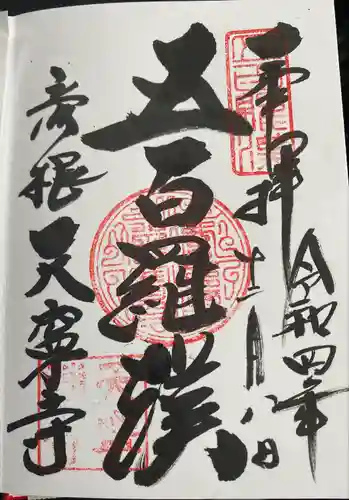 奉拝
令和四年
十二月八日
五百羅漢
彦根天寧寺